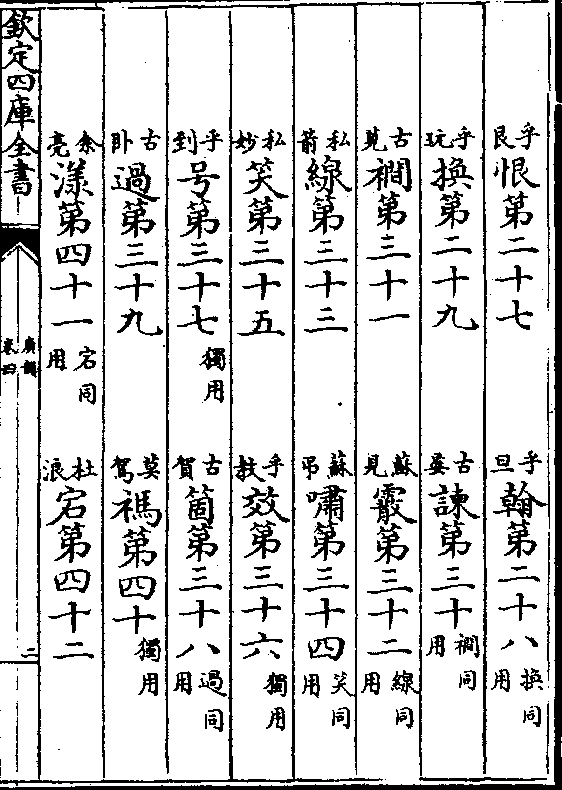 乎艮恨第二十七　乎旦翰第二十八換同用
乎玩換第二十九　古晏諫第三十襇同用
古莧襇第三十一　蘇見霰第三十二線同用
私箭線第三十三　蘇吊嘯第三十四笑同用
私妙笑第三十五　乎教效第三十六獨用
乎到号第三十七獨用　古賀箇第三十八過同用
古卧過第三十九　莫駕禡第四十獨用
余亮漾第四十一宕同用　杜浪宕第四十二
欽定四庫全書
廣韻
卷四
二